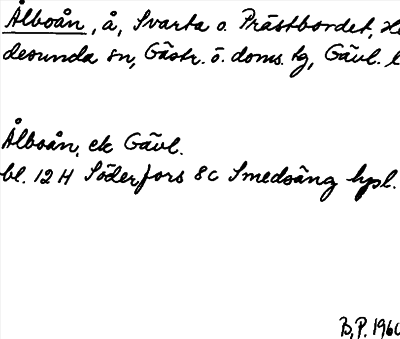 Ålboån, å, Svarta o. Prästbordet, He
desunda sn, Gästr. ö. doms. tg, Gävl. l
Ålboån, ek Gävl.
bl. 12 H Söderfors 8c Smedsäng hpl.
B.P. 1960